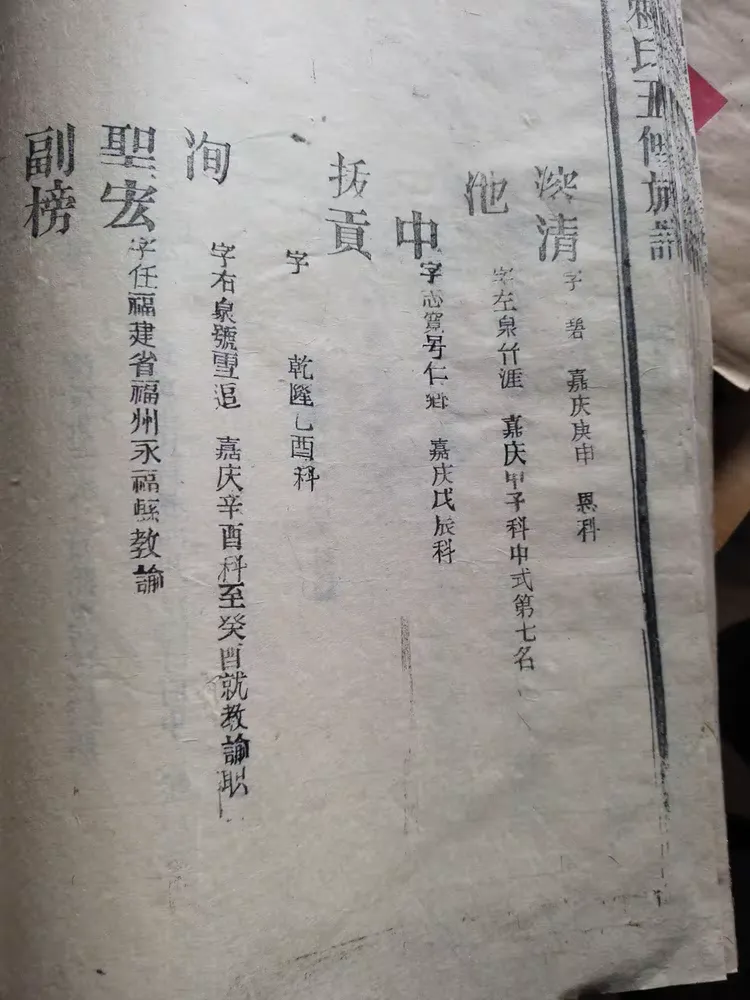 氏五修族譜
清 字 碧 嘉庆庚申 恩科
池 字左泉竹涯 嘉庆甲子科中式第七名
中 字志寬号仁 嘉庆戊辰科
拔貢
字 乾隆乙酉科
洵 字右泉號雪追 嘉庆辛酉科至癸酉就教諭职
聖宏 字任福建省福州永福縣教諭
副榜